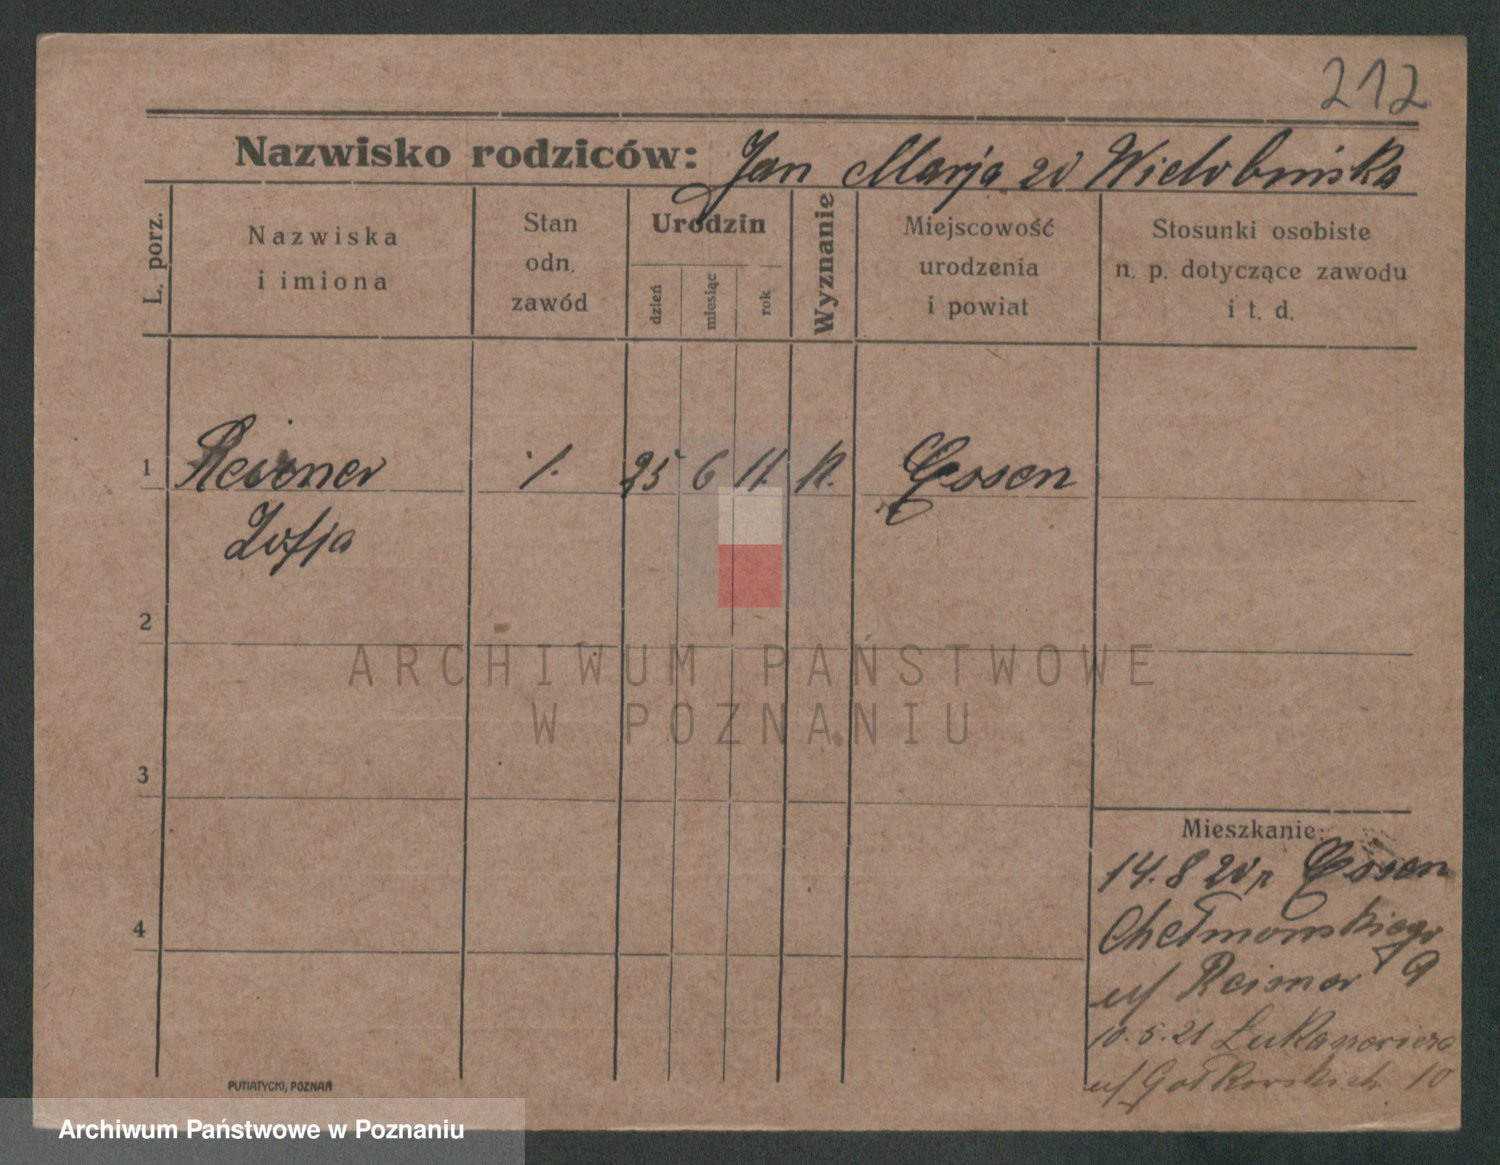 212
Nazwisko rodziców: Jan Marja zd
L. porz.
Nazwiska
i imiona
Stan
odn.
zawód
Urodzin
dzień
miesiąc
rok
Wyznanie
Miejscowość
urodzenia
i powiat
Stosunki osobiste
n. p. dotyczące zawodu
i t. d.
1 25 6 11. K. Essen
Zofja
2
3
4
ARCHIWUM PAŃSTWOWE
W POZNANIU
Mieszkanie:
14.8 20 r Essen
Chełmońskiego
u/ Reimer 9
10.5.21
u/ 10
PUTIATYCKI, POZNAŃ
Archiwum Państwowe w Poznaniu